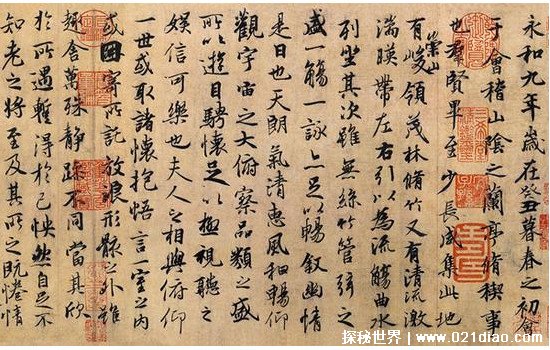 永和九年歲在癸丑暮春之初會
于會稽山陰之蘭亭脩稧事
也羣賢畢至少長咸集此地
有崇山峻領茂林脩竹又有清流激
湍暎帶左右引以為流觴曲水
列坐其次雖無絲竹管弦之
盛一觴一詠亦足以暢叙幽情
是日也天朗氣清惠風和暢仰
觀宇宙之大俯察品類之盛
所以遊目騁懷足以極視聽之
娛信可樂也夫人之相與俯仰
一世或取諸懷抱悟言一室之內
或因寄所託放浪形骸之外雖
趣舍萬殊靜躁不同當其欣
於所遇蹔得於己怏然自足不
知老之將至及其所之既惓情
探秘世界 | www.021diao.com